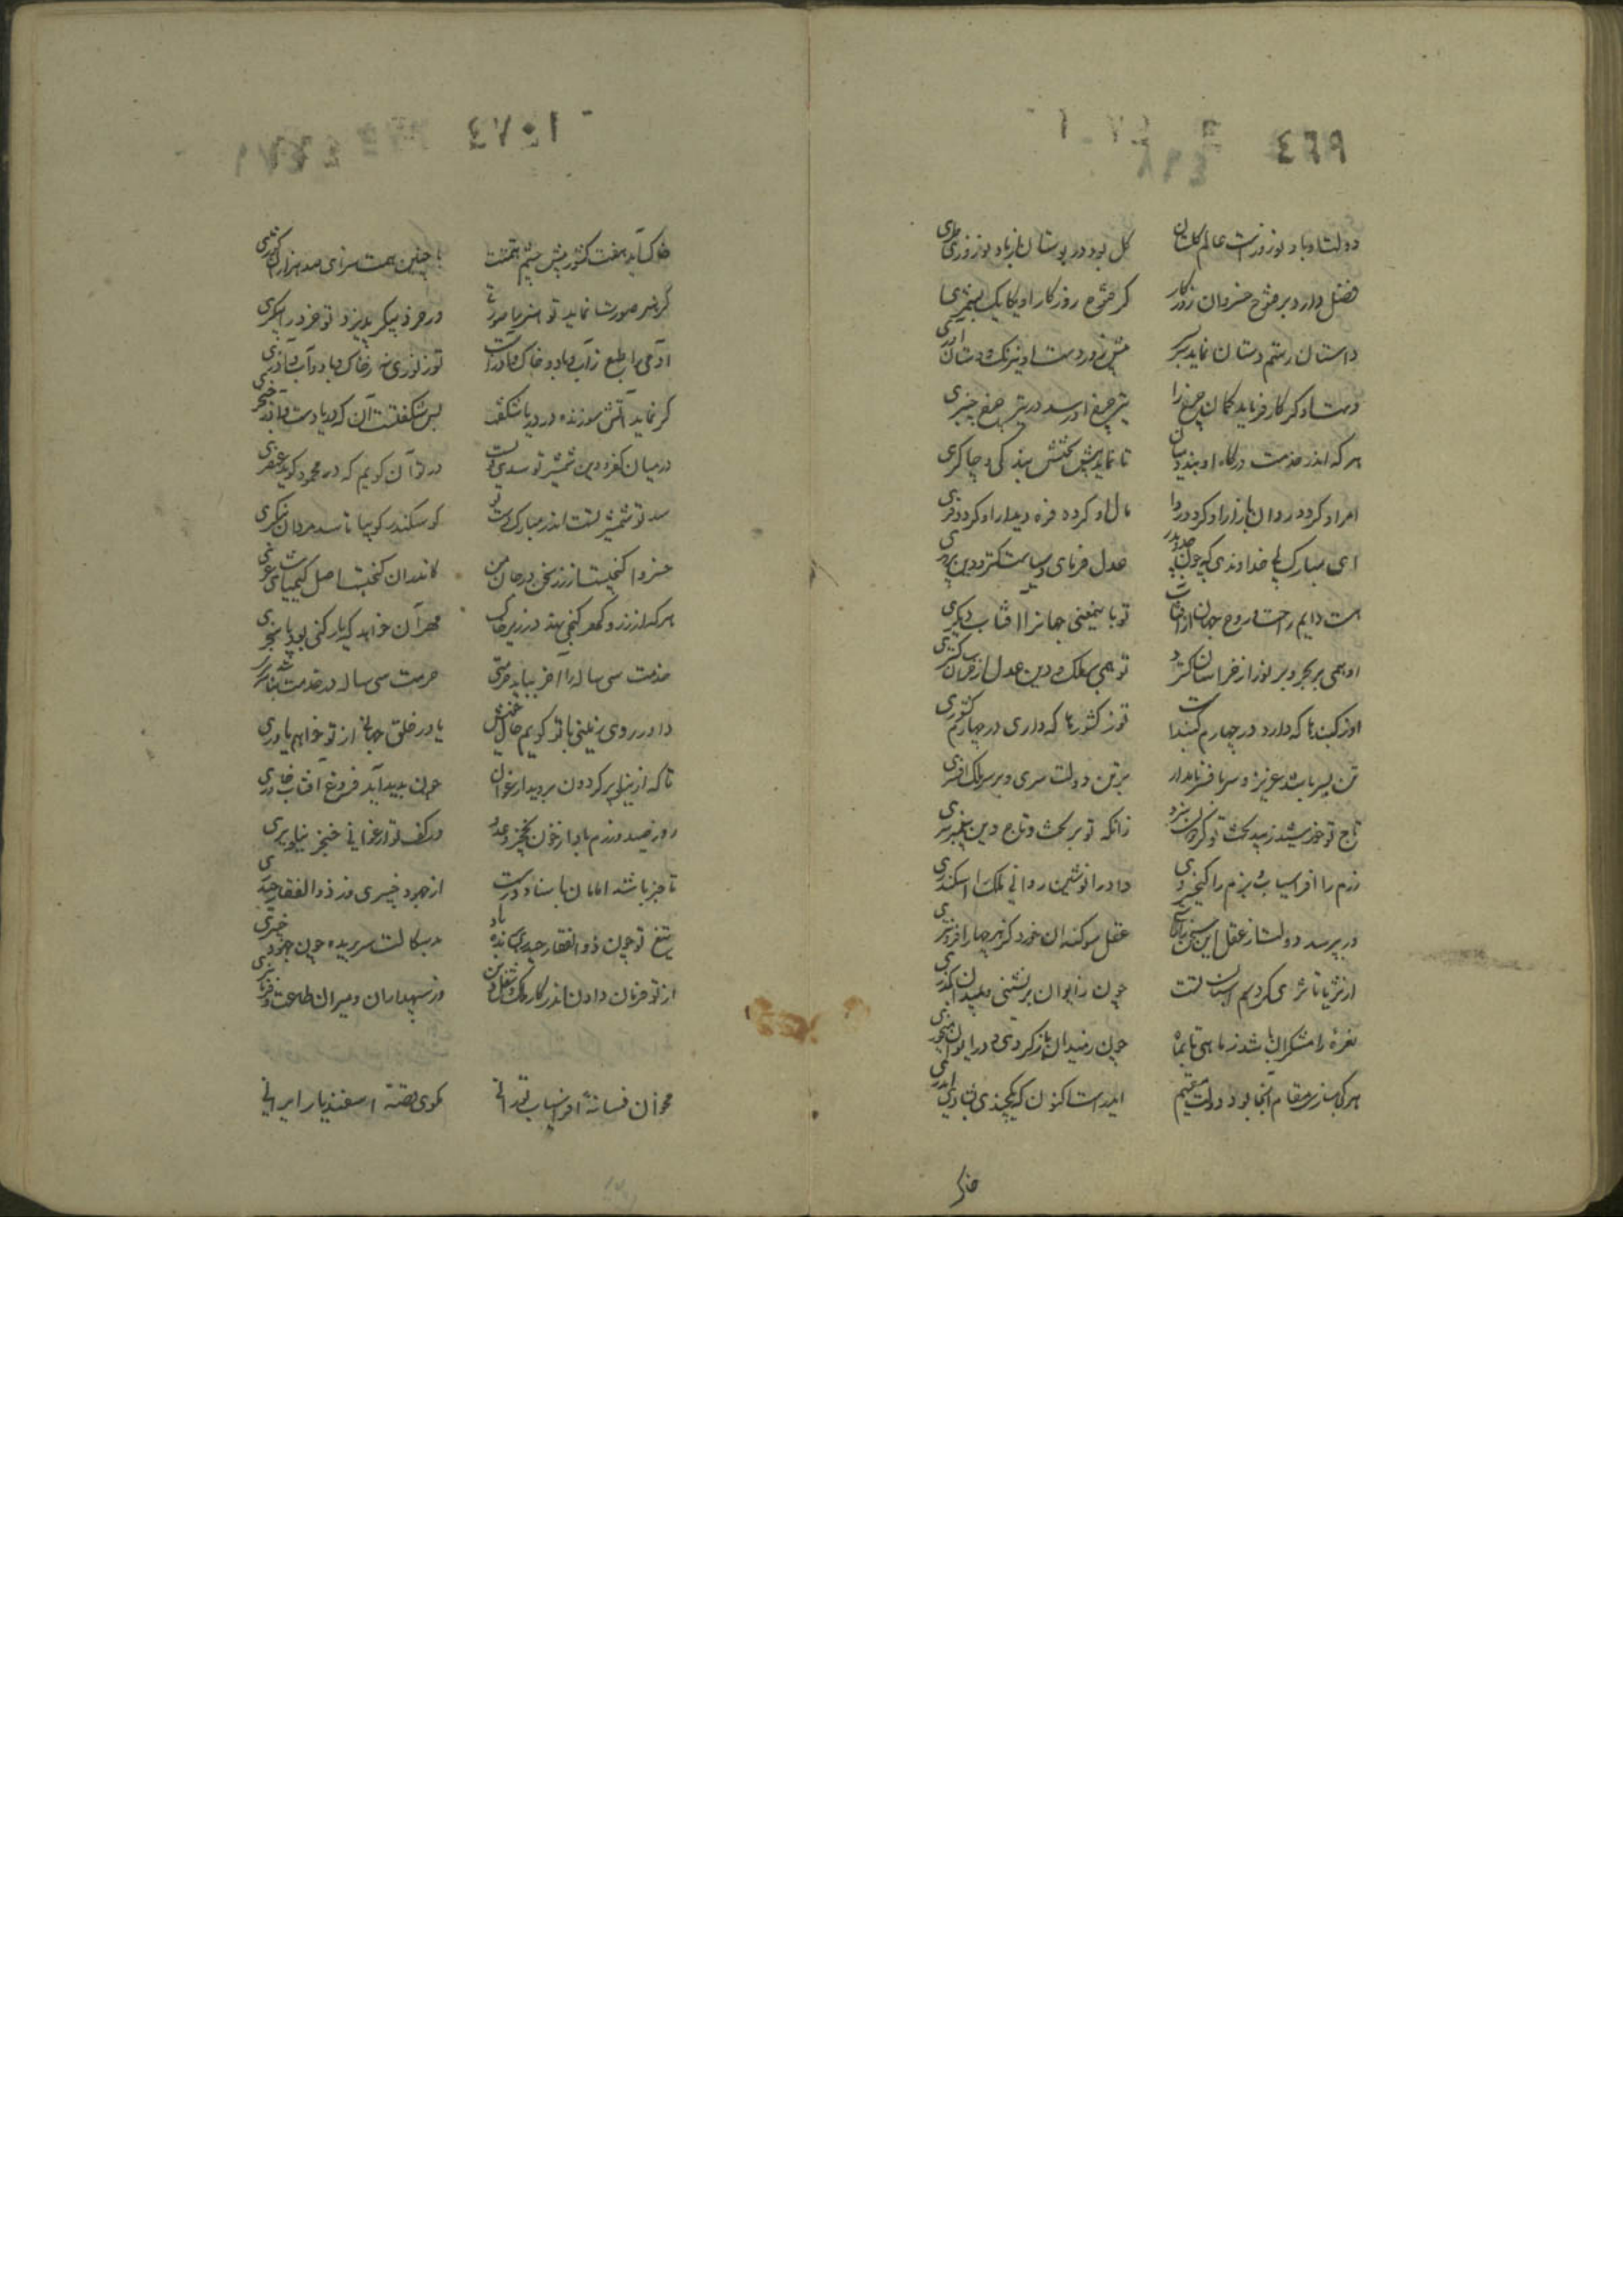 ٤٦٩
دولت او باد نوروزست عالم گلستان گل بود در بوستان از باد نوروزی طری
فضل دارد بر فتوح خسروان روزگار گر فتوح روزگار او یکایک بشمری
داستان رستم دستان نماید پیش زور دست او نیرنک و دستان آوری
دست او گر کار فرماید کمان چرخ را تیر چرخ او رسد در تیر چرخ چنبری
هر که اندر خدمت درگاه او بندد میان تا نماید پیش تختش بندگی و چاکری
امر او گردد روان بازار او گردد روا مال او گردد فره دیدار او گردد فری
ای مبارک پی خداوندی که چون جد و پدر عدل فرمای و سیاست گستر و دین پروری
هست دایم راحت روح جهان از آفتاب تو باین معنی جهانرا آفتاب دیگری
او همی بر بحر و بر نور از خراسان گسترد تو همی بر ملک و دین عدل از خراسان گستری
او ز گنبدها که دارد در چهارم گنبدست تو ز کشورها که داری در چهارم کشوری
تن بسر باشد عزیز و سر بافسر نامدار بر تن دولت سری و بر سر ملک افسری
تاج تو خورشید زیبد تخت تو گردون سزد زانکه تو بر تخت و تاج دین پیغمبری
رزم را افراسیاب و بزم را کیخسروی داد را نوشین روانی ملک را اسکندری
ور بپرسد دولت از عقل این سخن عقل سوگند آن خورد کز هر چهار افزونتری
از ثریا تا ثری گردیم آستان تست چون ز ایوان برنشینی و بمیدان بگذری
نعره رامشگران باشد ز ماهی تا بماه چون ز میدان بازگردی و در ایوان می خوری
هر کجا سازی مقام آنجا بود دولت مقیم ایدرست اکنون که یکچندی بشادی ایدری
خاک
٤٧٠١
خاک آید هفت کشور پیش چشم همتت با چنین همت سزای صد هزاران کشوری
گر هنر صورت نماید تو هنر را صورتی ور خرد پیکر پذیرد تو خرد را پیکری
آدمی را طبع ز آب و باد و خاک و آذرست تو ز نوری نه ز خاک و باد و آب و آذری
گر نماید آتش سوزنده در دریا شگفت بس شگفتست آن که دریا دست و آذر خنجری
در میان کفر و دین شمشیر تو سدی قویست در تو آن گویم که در محمود گوید عنصری
سد تو شمشیر تست اندر مبارک دست تو کو سکندر گو بیا تا سد مردان بنگری
خسروا گنجیست از زر سخن در جان من کاندران گنجست اصل کیمیای شاعری
هر که از زر و گهر گنجی نهد در زیر خاک مهر آن خواهد که بار گنج بود یا بر خوری
خدمت سی ساله را آخر بباید حرمتی حرمت سی ساله در خدمت نباشد سرسری
داور روی زمینی با تو گویم حال خویش یاور خلق جهانی از تو خواهم یاوری
تا که از نیلوفر گردون بروید ارغوان چون بدید آید فروغ آفتاب خاوری
روز صید و رزم باد از خون نخجیر و عدو در کف تو ارغوانی خنجر نیلوفری
تا خبر باشد امامان را باسناد درست از جهود خیبری وز ذوالفقار حیدری
تیغ تو چون ذوالفقار حیدری پاینده باد بدسگالت سر بریده چون جهود خیبری
از تو فرمان دادن اندر کار ملک و شغل دین وز سپهداران و میران طاعت و فرمانبری
مخوان فسانه افراسیاب تورانی مگوی قصه اسفندیار ایرانی